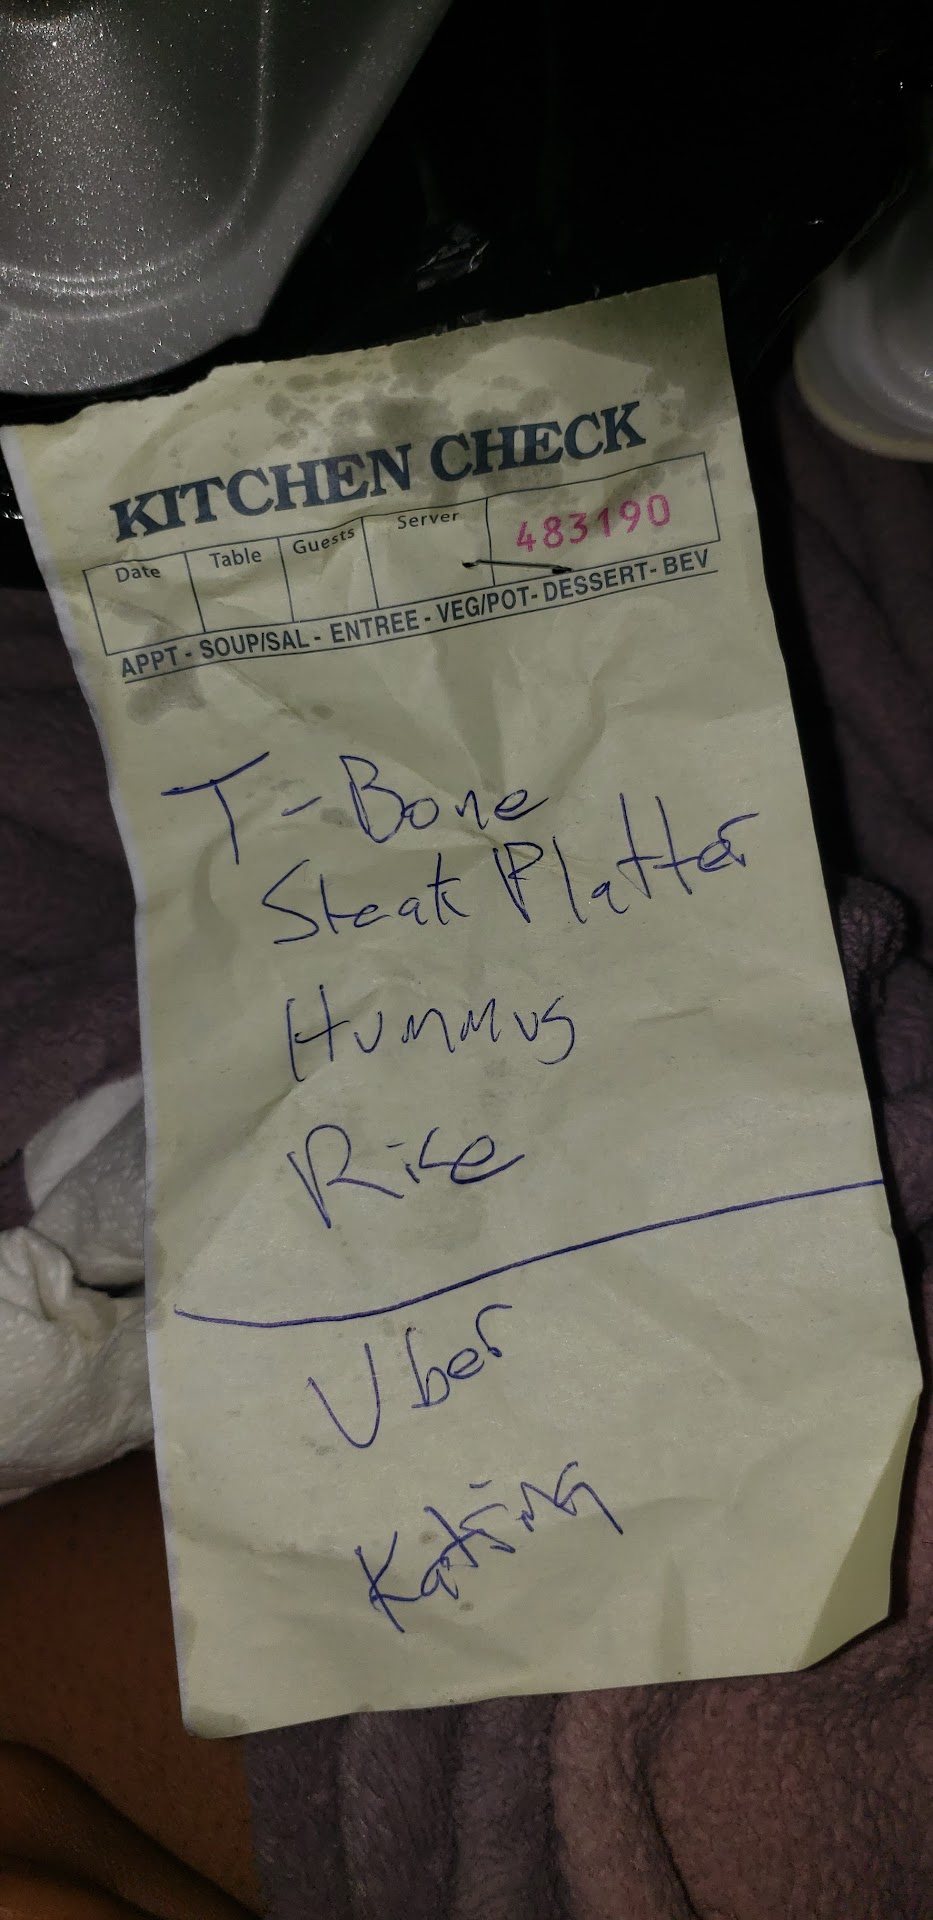 KITCHEN CHECK
Date Table Guests Server 483190
APPT - SOUP/SAL - ENTREE - VEG/POT - DESSERT - BEV
T-Bone
Steak Platter
Hummus
Rice
Uber
Katrina